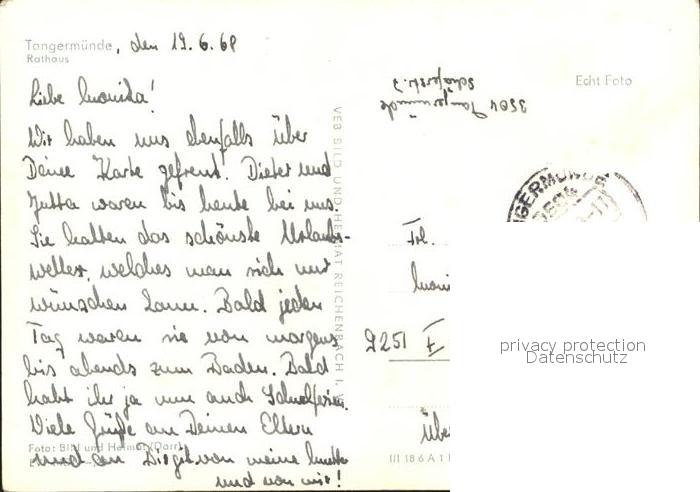 Tangermünde, den 19.6.68
Rathaus
Liebe Monika!
Wir haben uns ebenfalls über
Deine Karte gefreut. Dieter und
Jutta waren bis heute bei uns.
Sie hatten das schönste Urlaubs-
wetter, welches man sich nur
wünschen kann. Bald jeden
Tag waren sie von morgens
bis abends zum Baden. Bald
habt ihr ja nun auch Schulferien.
Viele Grüße an Deinen Eltern
und an Dir von meine Mutti
und von mir!
Foto: Bild und Heimat (Dorr)
VEB BILD UND HEIMAT REICHENBACH I. V.
Echt Foto
3504 Tangermünde
Schäferstr. 7
TANGERMÜNDE
3504
Frl.
Moni
9251
Übe
III 18 6 A 1
privacy protection
Datenschutz